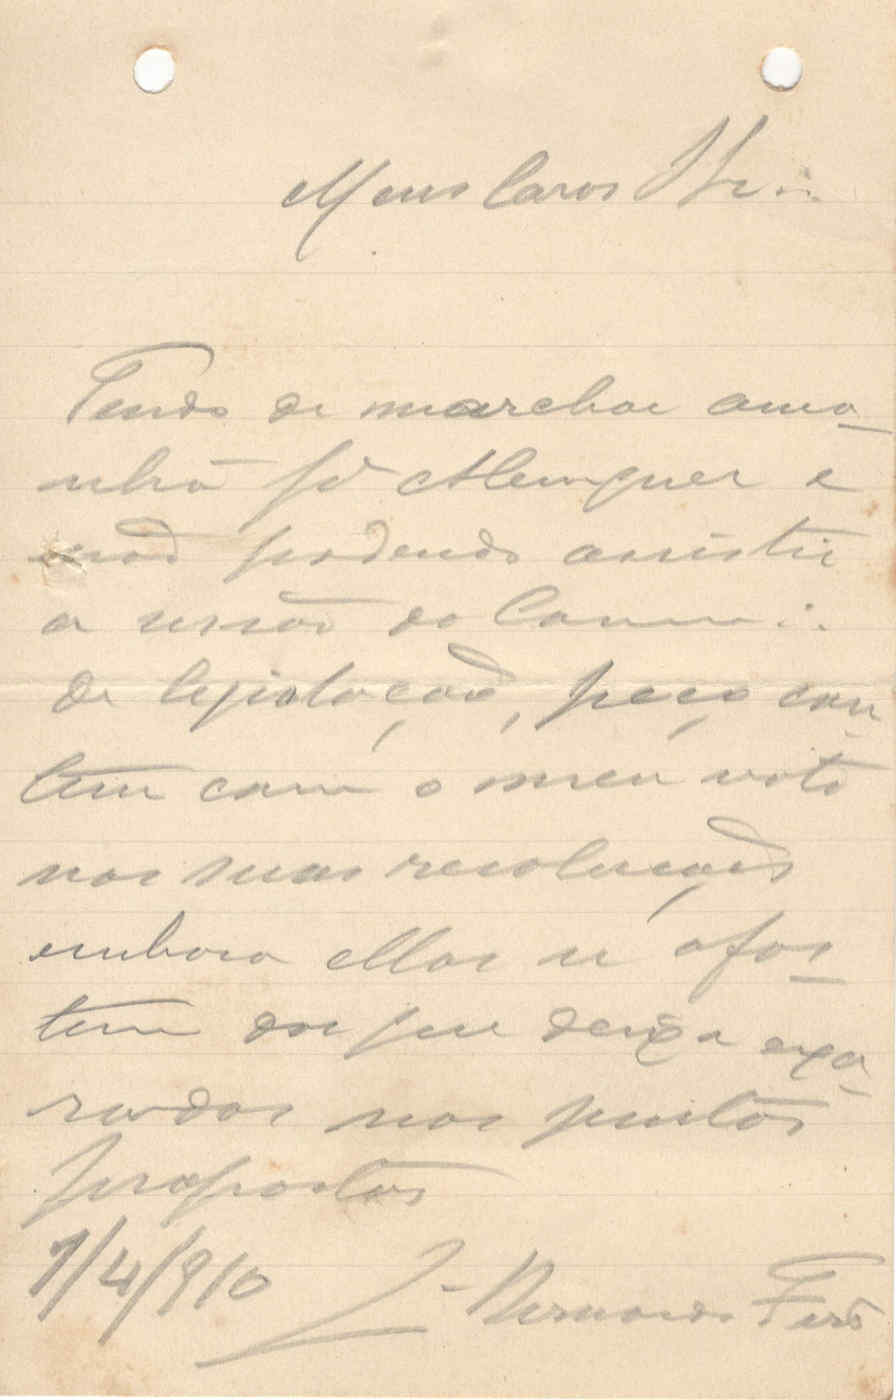 Meus Caros Srs.
Tendo de marchar ama-
nhã pª Alemquer e
não podendo assistir
a sessão da Comm.
de legislação, peço con-
tem com o meu voto
nas suas resoluções
embora ellas se afas-
tem das que deixa exa-
radas nos pontos
propostos
7/4/910
Bernardo Ferrº